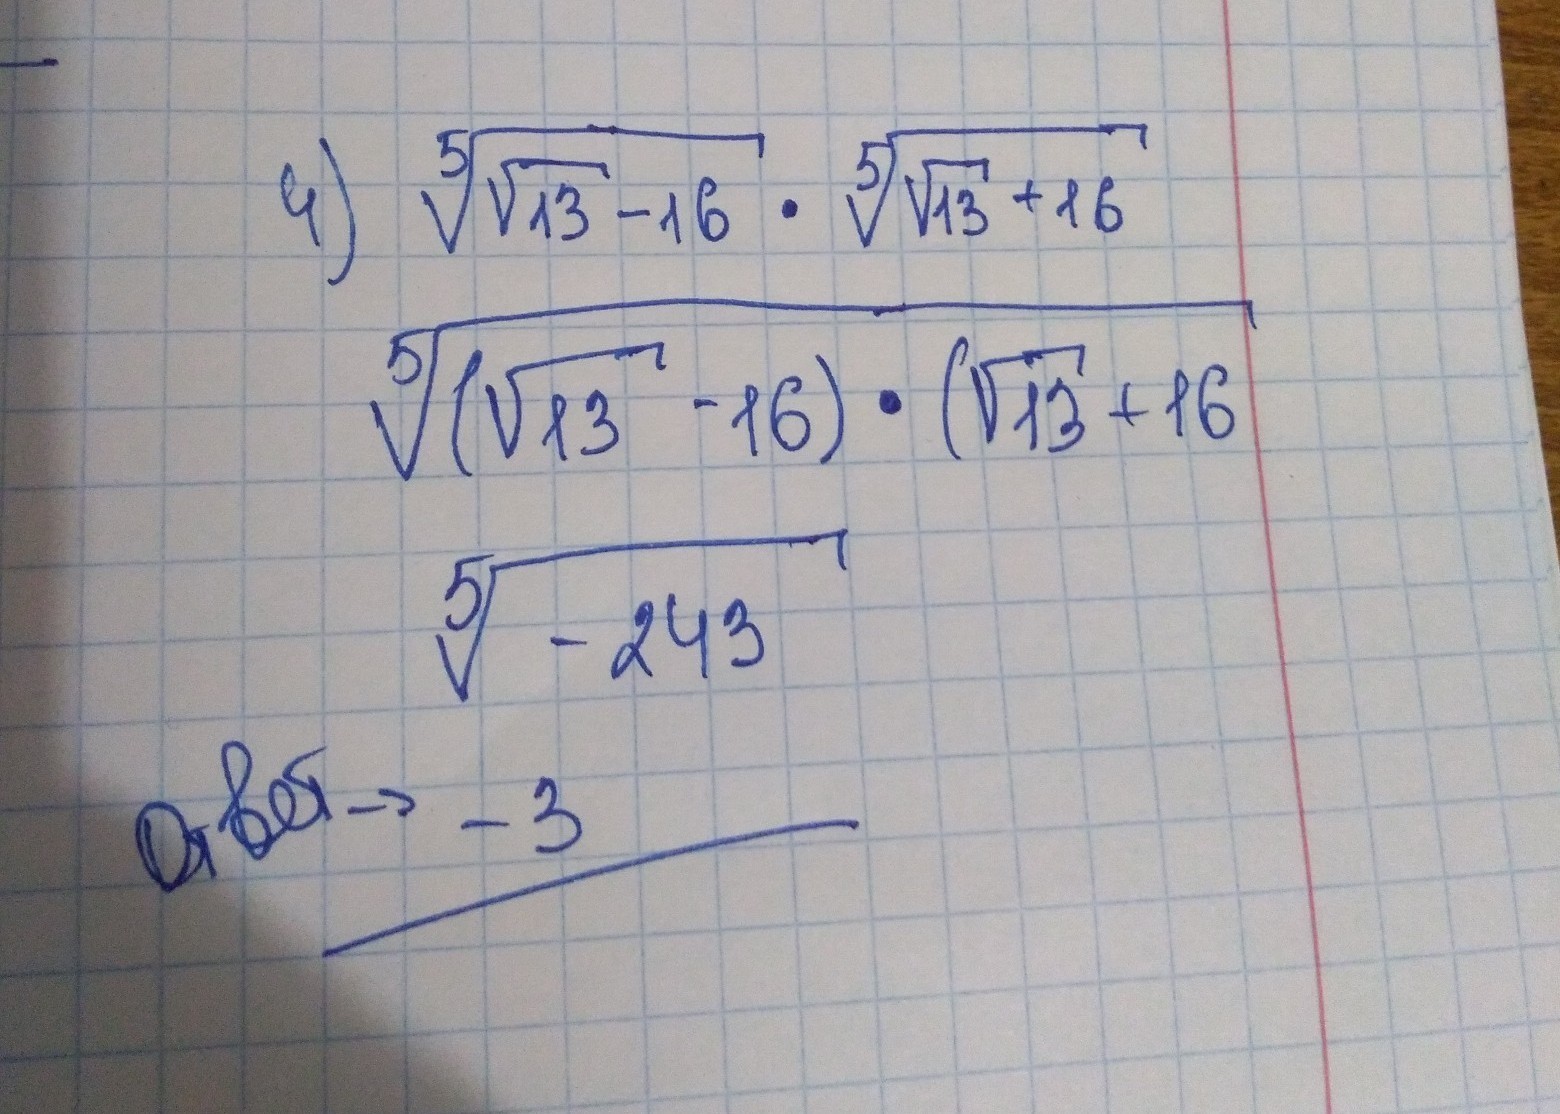 4) ⁵√(√13 - 16) · ⁵√(√13 + 16)
⁵√((√13 - 16) · (√13 + 16)
⁵√(-243)
Ответ → - 3